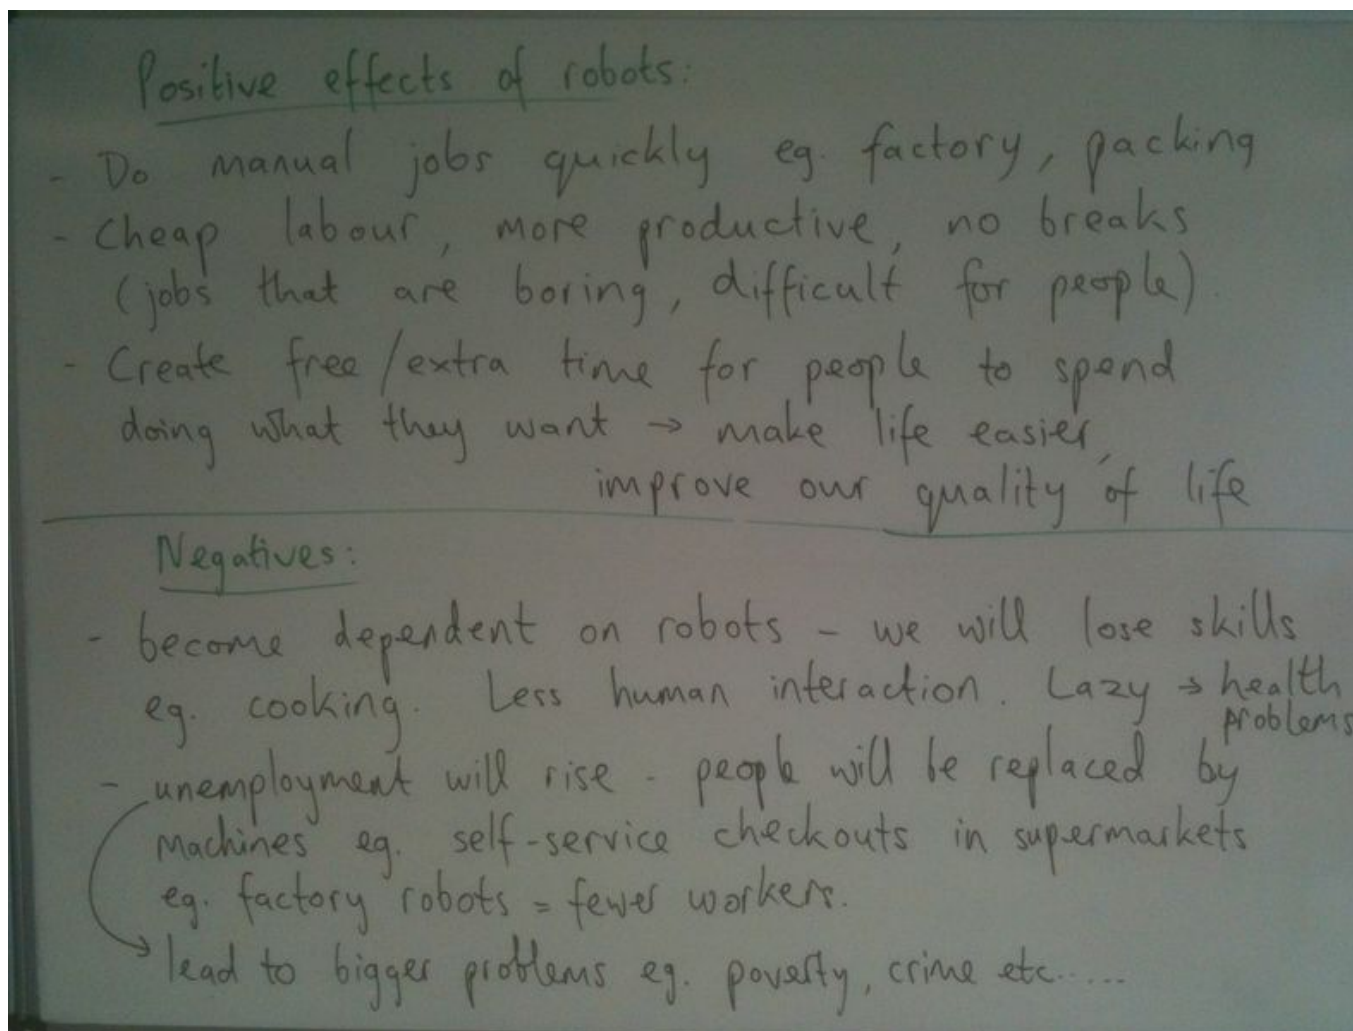 Positive effects of robots:
- Do manual jobs quickly eg. factory, packing
- Cheap labour, more productive, no breaks
(jobs that are boring, difficult for people).
- Create free/extra time for people to spend
doing what they want → make life easier,
improve our quality of life
Negatives:
- become dependent on robots - we will lose skills
eg. cooking. Less human interaction. Lazy → health
problems
- unemployment will rise - people will be replaced by
machines eg. self-service checkouts in supermarkets
eg. factory robots = fewer workers.
lead to bigger problems eg. poverty, crime etc.....